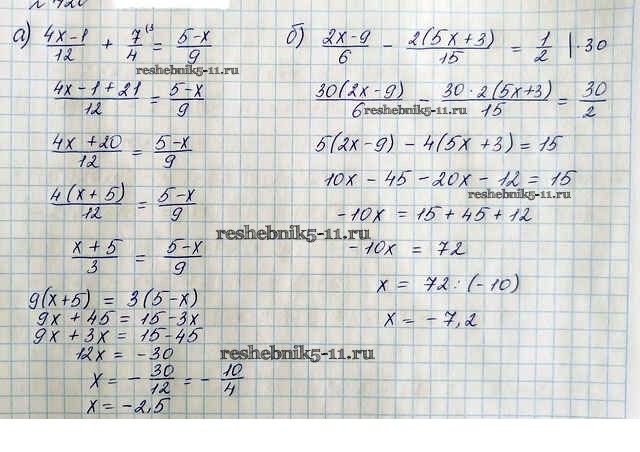 № 420
а) (4x-1)/12 + 7/4 (3 = (5-x)/9
reshebnik5-11.ru
(4x-1+21)/12 = (5-x)/9
(4x+20)/12 = (5-x)/9
4(x+5)/12 = (5-x)/9
reshebnik5-11.ru
(x+5)/3 = (5-x)/9
9(x+5) = 3(5-x)
9x + 45 = 15-3x
9x + 3x = 15-45
12x = -30
reshebnik5-11.ru
x = - 30/12 = - 10/4
x = -2,5
б) (2x-9)/6 - 2(5x+3)/15 = 1/2 |·30
30(2x-9)/6 - 30·2(5x+3)/15 = 30/2
reshebnik5-11.ru
5(2x-9) - 4(5x+3) = 15
10x - 45 - 20x - 12 = 15
reshebnik5-11.ru
-10x = 15 + 45 + 12
-10x = 72
x = 72 : (-10)
x = -7,2